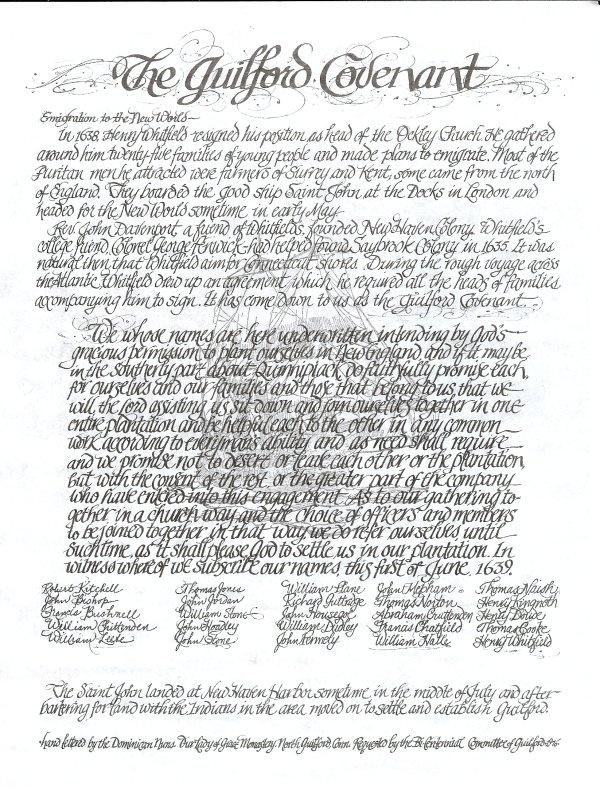 The Guilford Covenant
Emigration to the New World—
In 1638, Henry Whitfield resigned his position as head of the Ockley Church. He gathered
around him twenty-five families of young people and made plans to emigrate. Most of the
Puritan men he attracted were farmers of Surrey and Kent, some came from the north
of England. They boarded the good ship Saint John at the Docks in London and
headed for the New World sometime in early May.
Rev. John Davenport, a friend of Whitfield's, founded New Haven Colony. Whitfield's
college friend, Colonel George Fenwick had helped found Saybrook Colony in 1635. It was
natural then that Whitfield aim for Connecticut shores. During the rough voyage across
the Atlantic Whitfield drew up an agreement which he required all the heads of families
accompanying him to sign. It has come down to us as the Guilford Covenant
We whose names are here underwritten intending by God's
gracious permission to plant ourselves in New England and if it may be,
in the southerly part about Quinnipiack do faithfully promise each,
for ourselves and our families and those that belong to us, that we
will, the Lord assisting us, sit down and join ourselves together in one
entire plantation and be helpful each to the other in any common
work according to every man's ability and as need shall require
and we promise not to desert or leave each other or the plantation,
but with the consent of the rest, or the greater part of the company
who have entered into this engagement. As to our gathering to-
gether in a church way and the choice of officers and members
to be joined together in that way, we do refer ourselves until
such time, as it shall please God to settle us in our plantation. In
witness where of we subscribe our names, this first of June, 1639.
Robert Kitchell Thomas Jones William Plane John Mepham Thomas Naish
John Bishop John Jordan Richard Guttridge Thomas Norton Henry Kingnoth
Francis Bushnell William Stone John Housegoe Abraham Cruttenden Henry Dowde
William Chittenden John Hoadley William Dudley Francis Chatfield Thomas Cooke
William Leete John Stone John Permely William Halle Henry Whitfield
The Saint John landed at New Haven Harbor sometime in the middle of July and after
bartering for land with the Indians in the area moved on to settle and establish Guilford.
hand lettered by the Dominican Nuns Our Lady of Grace Monastery, North Guilford, Conn. Requested by the Bi-Centennial Committee of Guilford